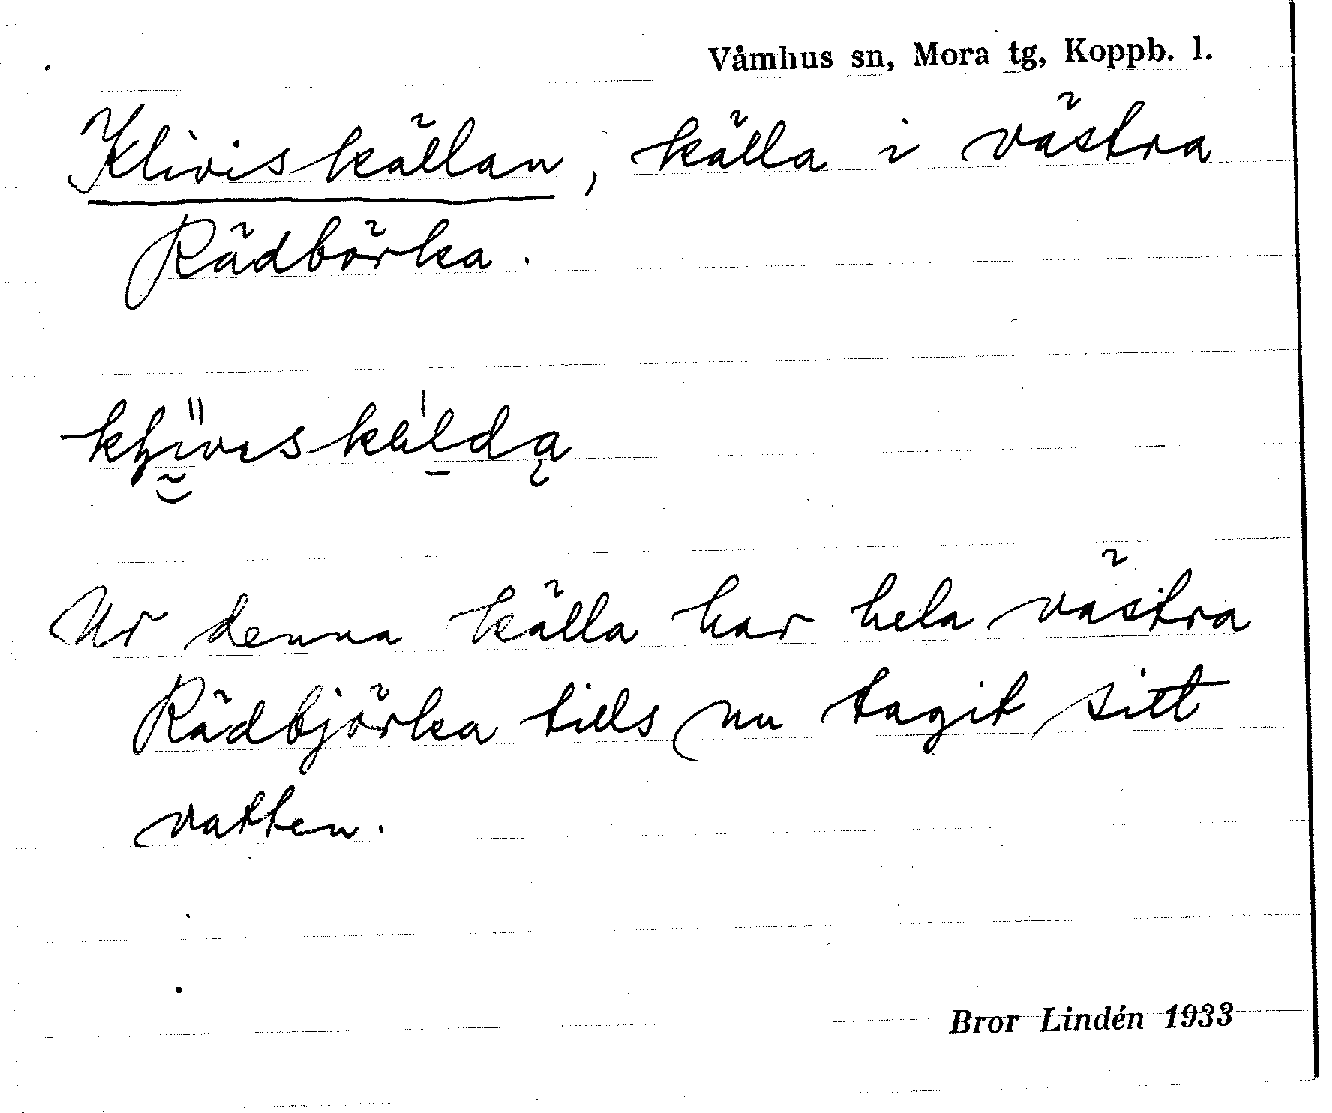 Våmhus sn, Mora tg, Koppb. l.
Kliviskällan, källa i västra
Rädbörka.
Ur denna källa har hela västra
Rädbjörka tills nu tagit sitt
vatten.
Bror Lindén 1933